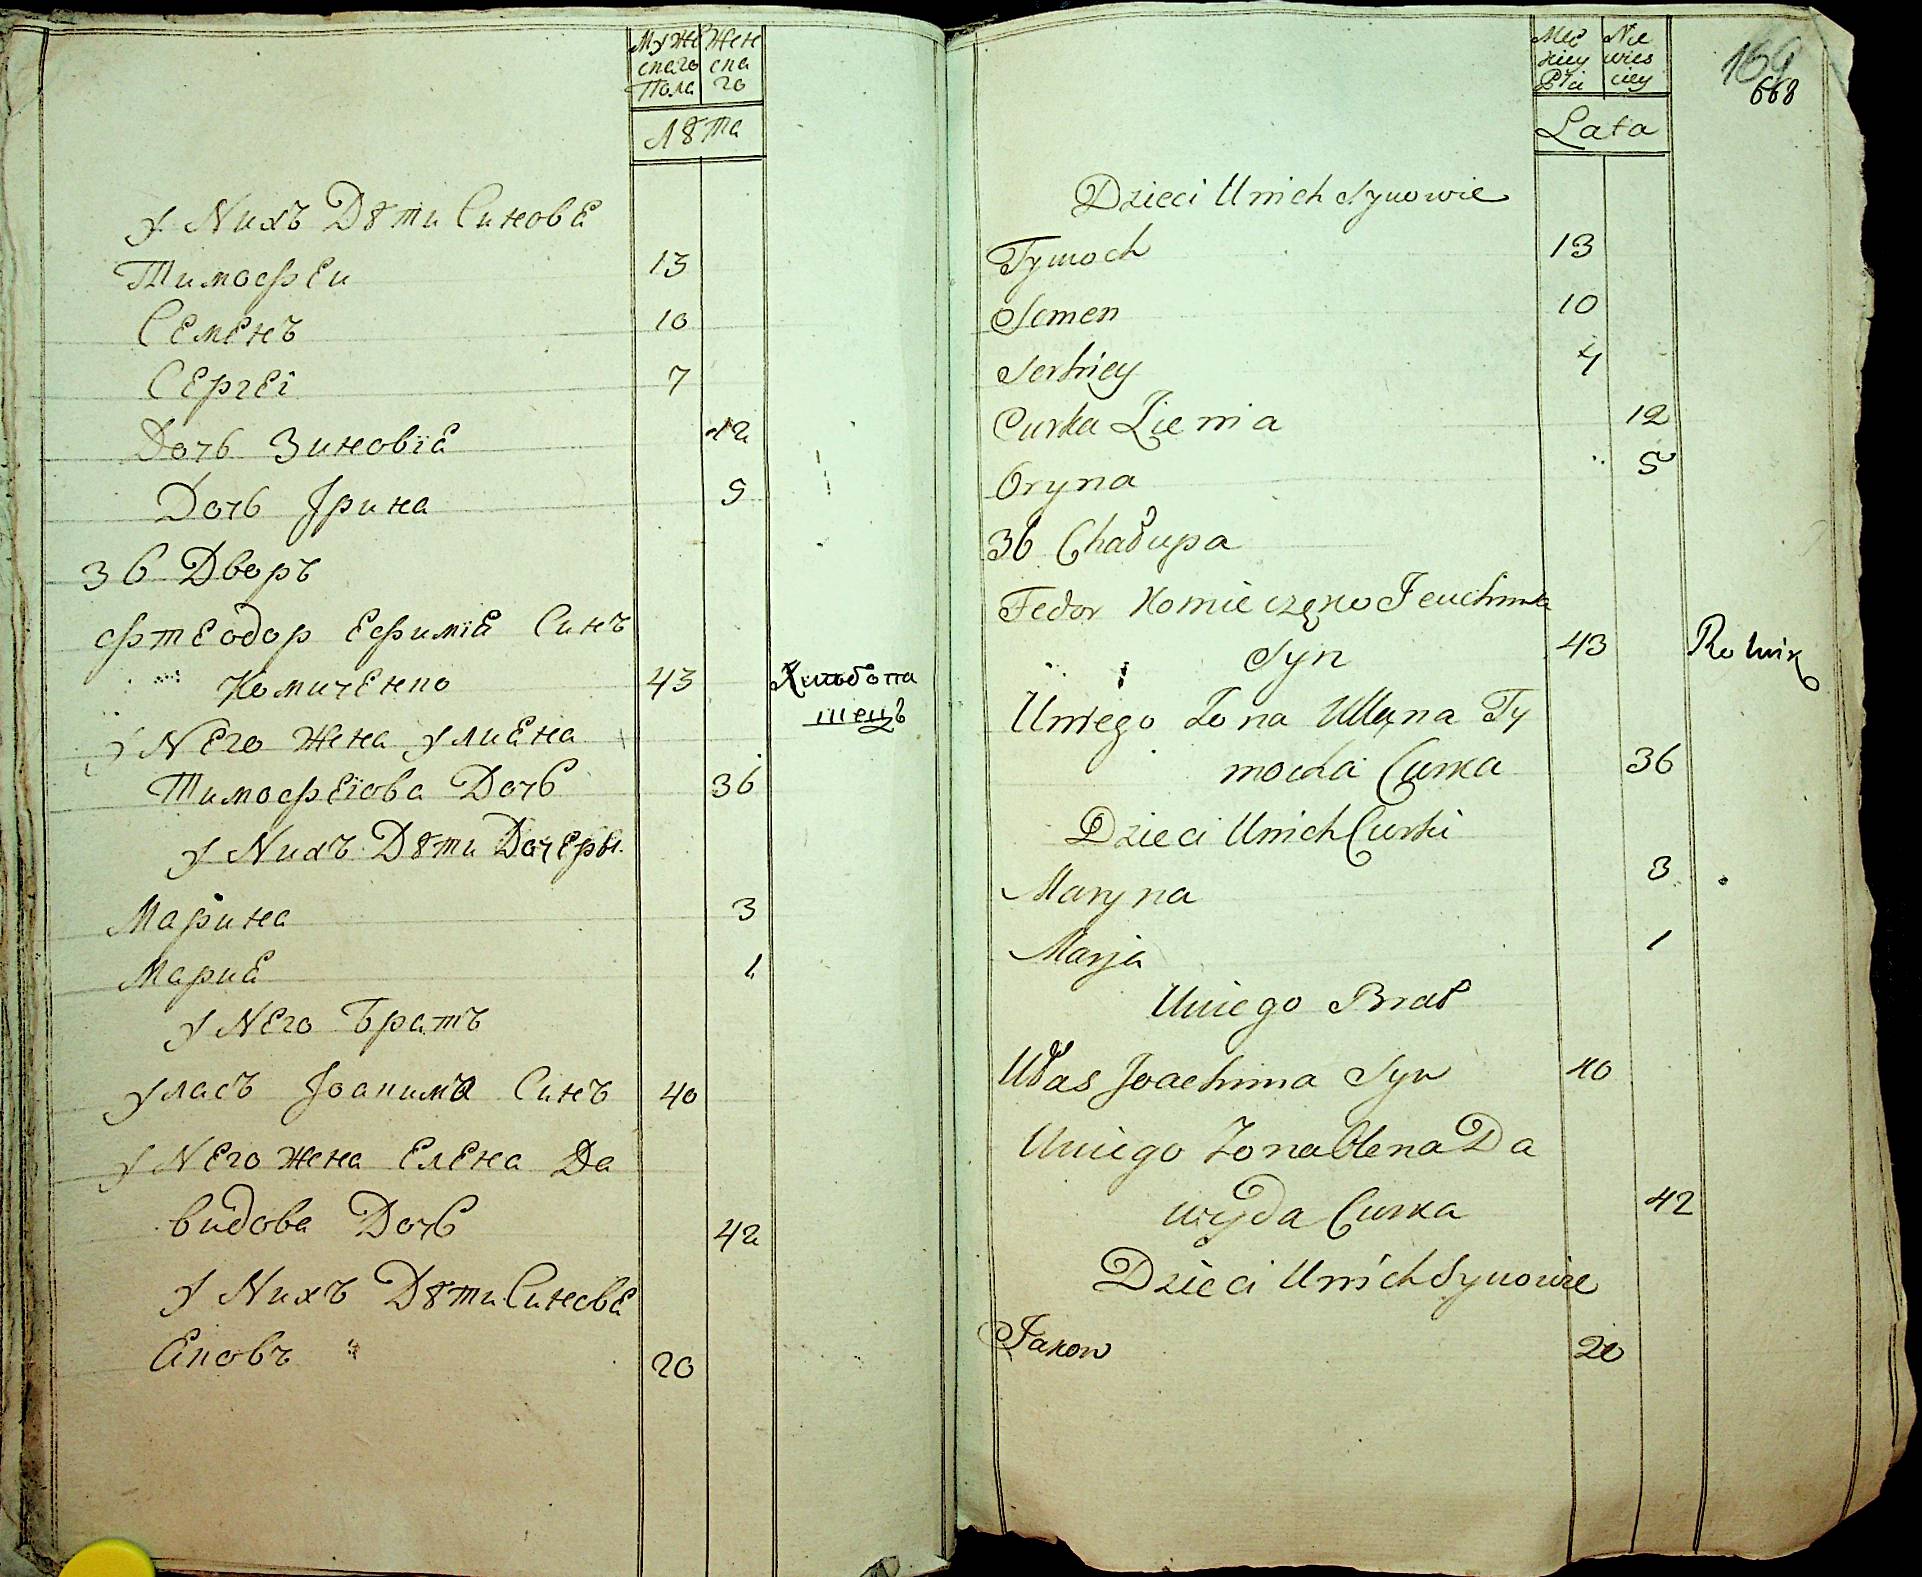 Муже Жен
скаго ска
Пола го
Лѣта
у Nихъ Дѣти Синовѣ
Тимосреи 13
Семенъ 10
Сергеі 7
Дочь Зиновіа 12
Дочь Јрина 5
36 Дворъ
Ефимиа Синъ
Комиченко 43
у Nего Жена улиана
Тимофеіова Дочь 36
у Nихъ Дѣти Дочеры
Марина 3
Мариа 1
у Nего Братъ
уласъ Јоакима Синъ 40
у Nего Жена Елена Да
видова Дочь 42
у Nихъ Дѣти Синовѣ
Яковъ 20
Męs Nie
kiey wies
Płci ciey
Lata
169
668
Dzieci Unich Synowie
Tymoch 13
Semen 10
Serhiey 7
Curka Zienia 12
Oryna 5
36 Chałupa
Fedor Komieczęko Jeuchima
Syn 43 Rolnik
Uniego Zona Ullana Ty
mocha Curka 36
Dzieci Unich Curki
Maryna 3
Marja 1
Uniego Brat
Ułas Joachima Syn 40
Uniego Zona Olena Da
wyda Curka 42
Dzieci Unich Synowie
Jakow 20